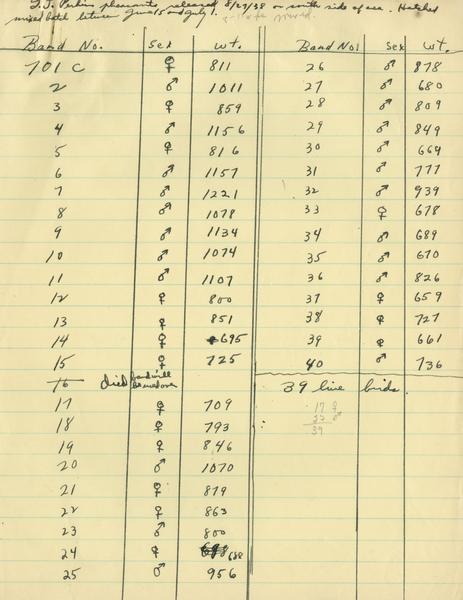 T.J. Perkin pheasants released 8/29/38 on south side of area. Hatched
mixed hatch between June 15 and July 1.
Band No. Sex wt. Band No. Sex wt.
701 C ♀ 811 26 ♂ 878
2 ♂ 1011 27 ♂ 680
3 ♀ 859 28 ♂ 809
4 ♂ 1156 29 ♂ 849
5 ♀ 816 30 ♂ 664
6 ♂ 1157 31 ♂ 777
7 ♂ 1221 32 ♂ 939
8 ♂ 1078 33 ♀ 678
9 ♂ 1134 34 ♂ 689
10 ♂ 1074 35 ♂ 670
11 ♂ 1107 36 ♂ 826
12 ♀ 800 37 ♀ 659
13 ♀ 851 38 ♀ 727
14 ♀ 695 39 ♀ 661
15 ♀ 725 40 ♂ 736
16 died 39 live birds.
17 ♀ 709 17 ♀
18 ♀ 793 22 ♂
19 ♀ 846 39
20 ♂ 1070
21 ♀ 879
22 ♀ 863
23 ♂ 800
24 ♀ 688
25 ♂ 956